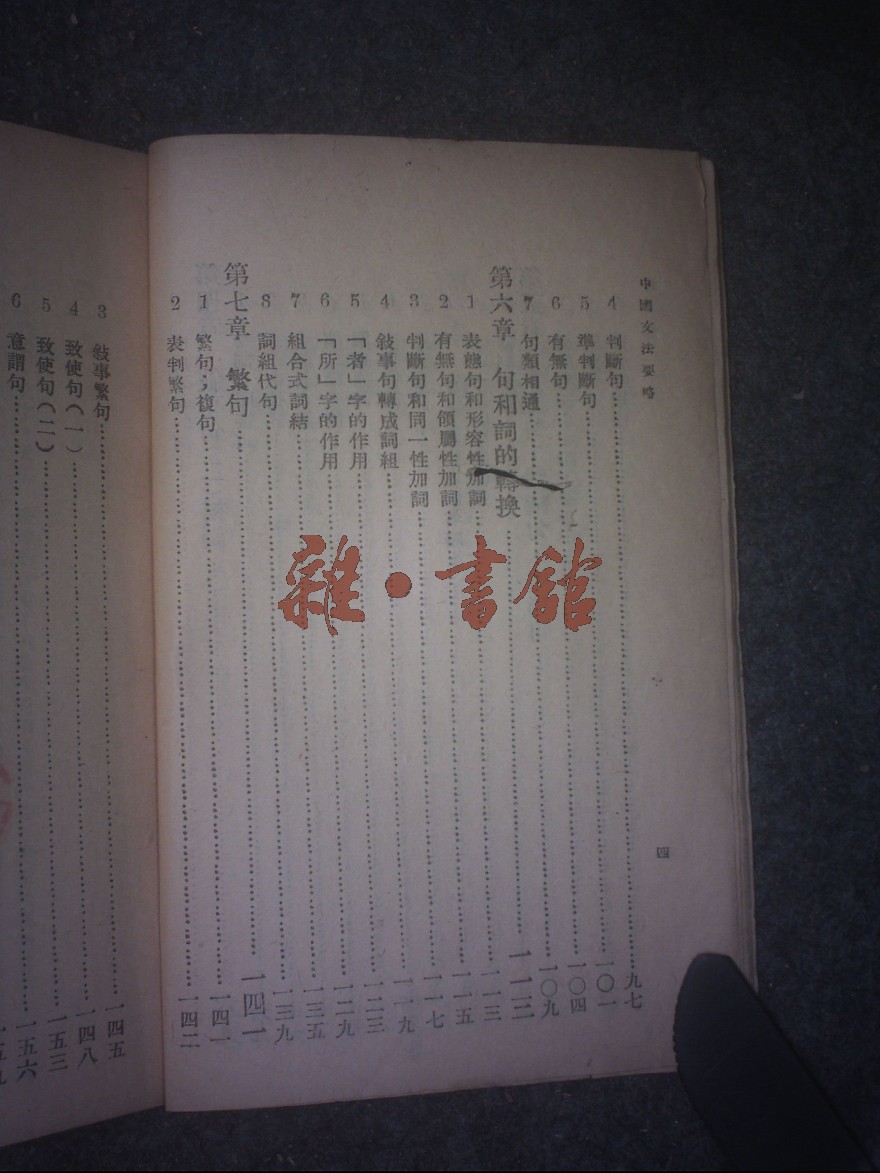 中國文法要略 四
4 判斷句……九七
5 準判斷句……一〇一
6 有無句……一〇四
7 句類相通……一〇九
第六章 句和詞的轉換……一一三
1 表態句和形容性加詞……一一三
2 有無句和領屬性加詞……一一五
3 判斷句和同一性加詞……一一七
4 敍事句轉成詞組……一一九
5 「者」字的作用……一二三
6 「所」字的作用……一二九
7 組合式詞結……一三五
8 詞組代句……一三九
第七章 繁句……一四一
1 繁句；複句……一四一
2 表判繁句……一四二
3 敍事繁句……一四五
4 致使句(一)……一四八
5 致使句(二)……一五三
6 意謂句……一五六
雜·書館